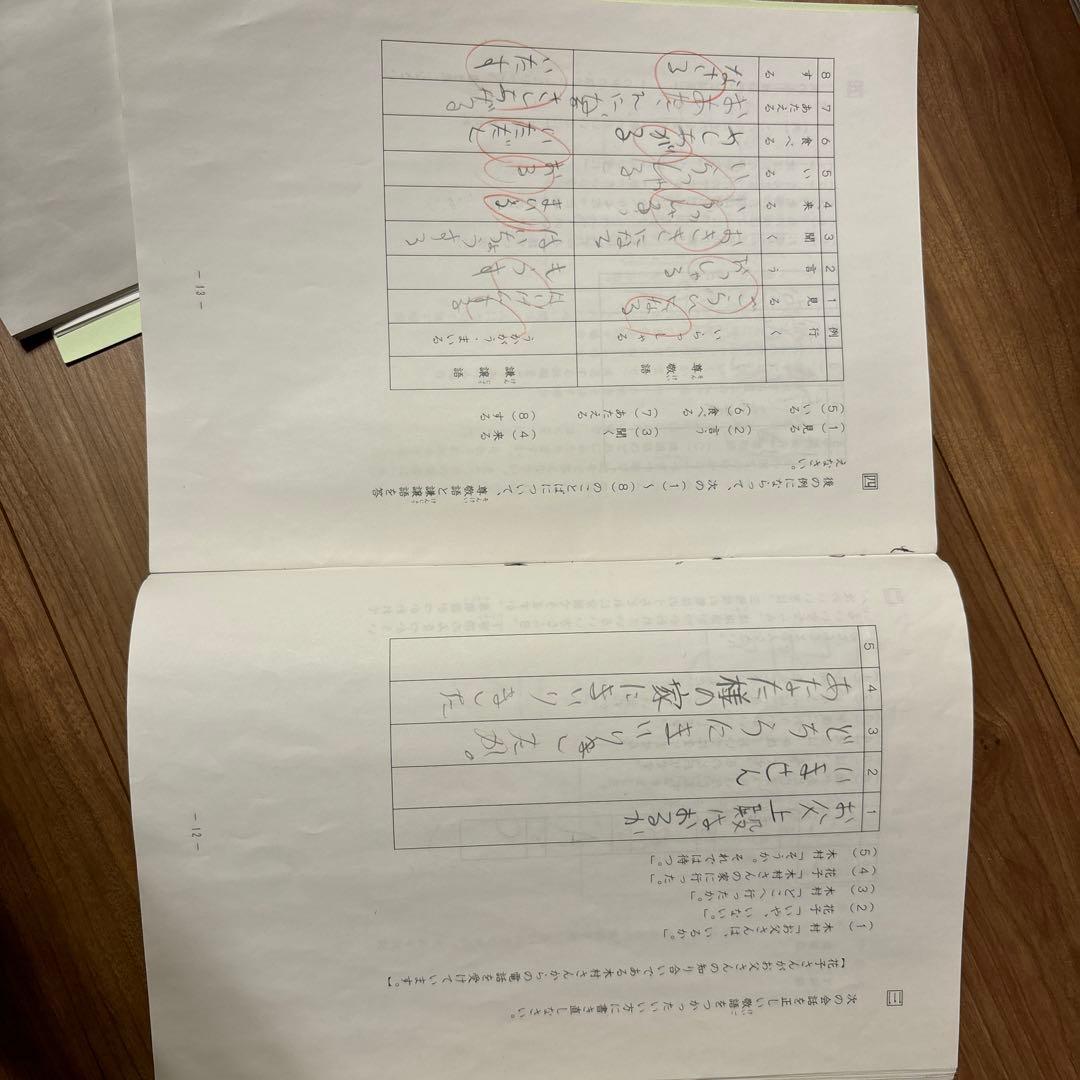 三 次の会話を正しい敬語をつかったいい方に書き直しなさい。
けいご
【花子さんがお父さんの知り合いである木村さんからの電話を受けています】
(1) 木村「お父さんは、いるか。」
(2) 花子「いや、いない。」
(3) 木村「どこへ行ったか。」
(4) 花子「木村さんの家に行った。」
(5) 木村「そうか。それでは待つ。」
1 お父上殿はおるか
2 いません
3 どちらにまいりましたか。
4 あなた様の家にまいりました
5
- 12 -
四 後の例にならって、次の(1)〜(8)のことばについて、尊敬語と謙譲語を答
そんけい けんじょう
えなさい。
(1) 見る (2) 言う (3) 聞く (4) 来る
(5) いる (6) 食べる (7) あたえる (8) する
尊敬語 謙譲語
そんけい けんじょう
例 行く いらっしゃる うかがう・まいる
1 見る ごらんになる はいけんする
2 言う おっしゃる もうす
3 聞く おききになる はいちょうする
4 来る いらっしゃる まいる
5 いる いらっしゃる おる
6 食べる めしあがる いただく
7 あたえる さしあげる
8 する なさる いたす
- 13 -